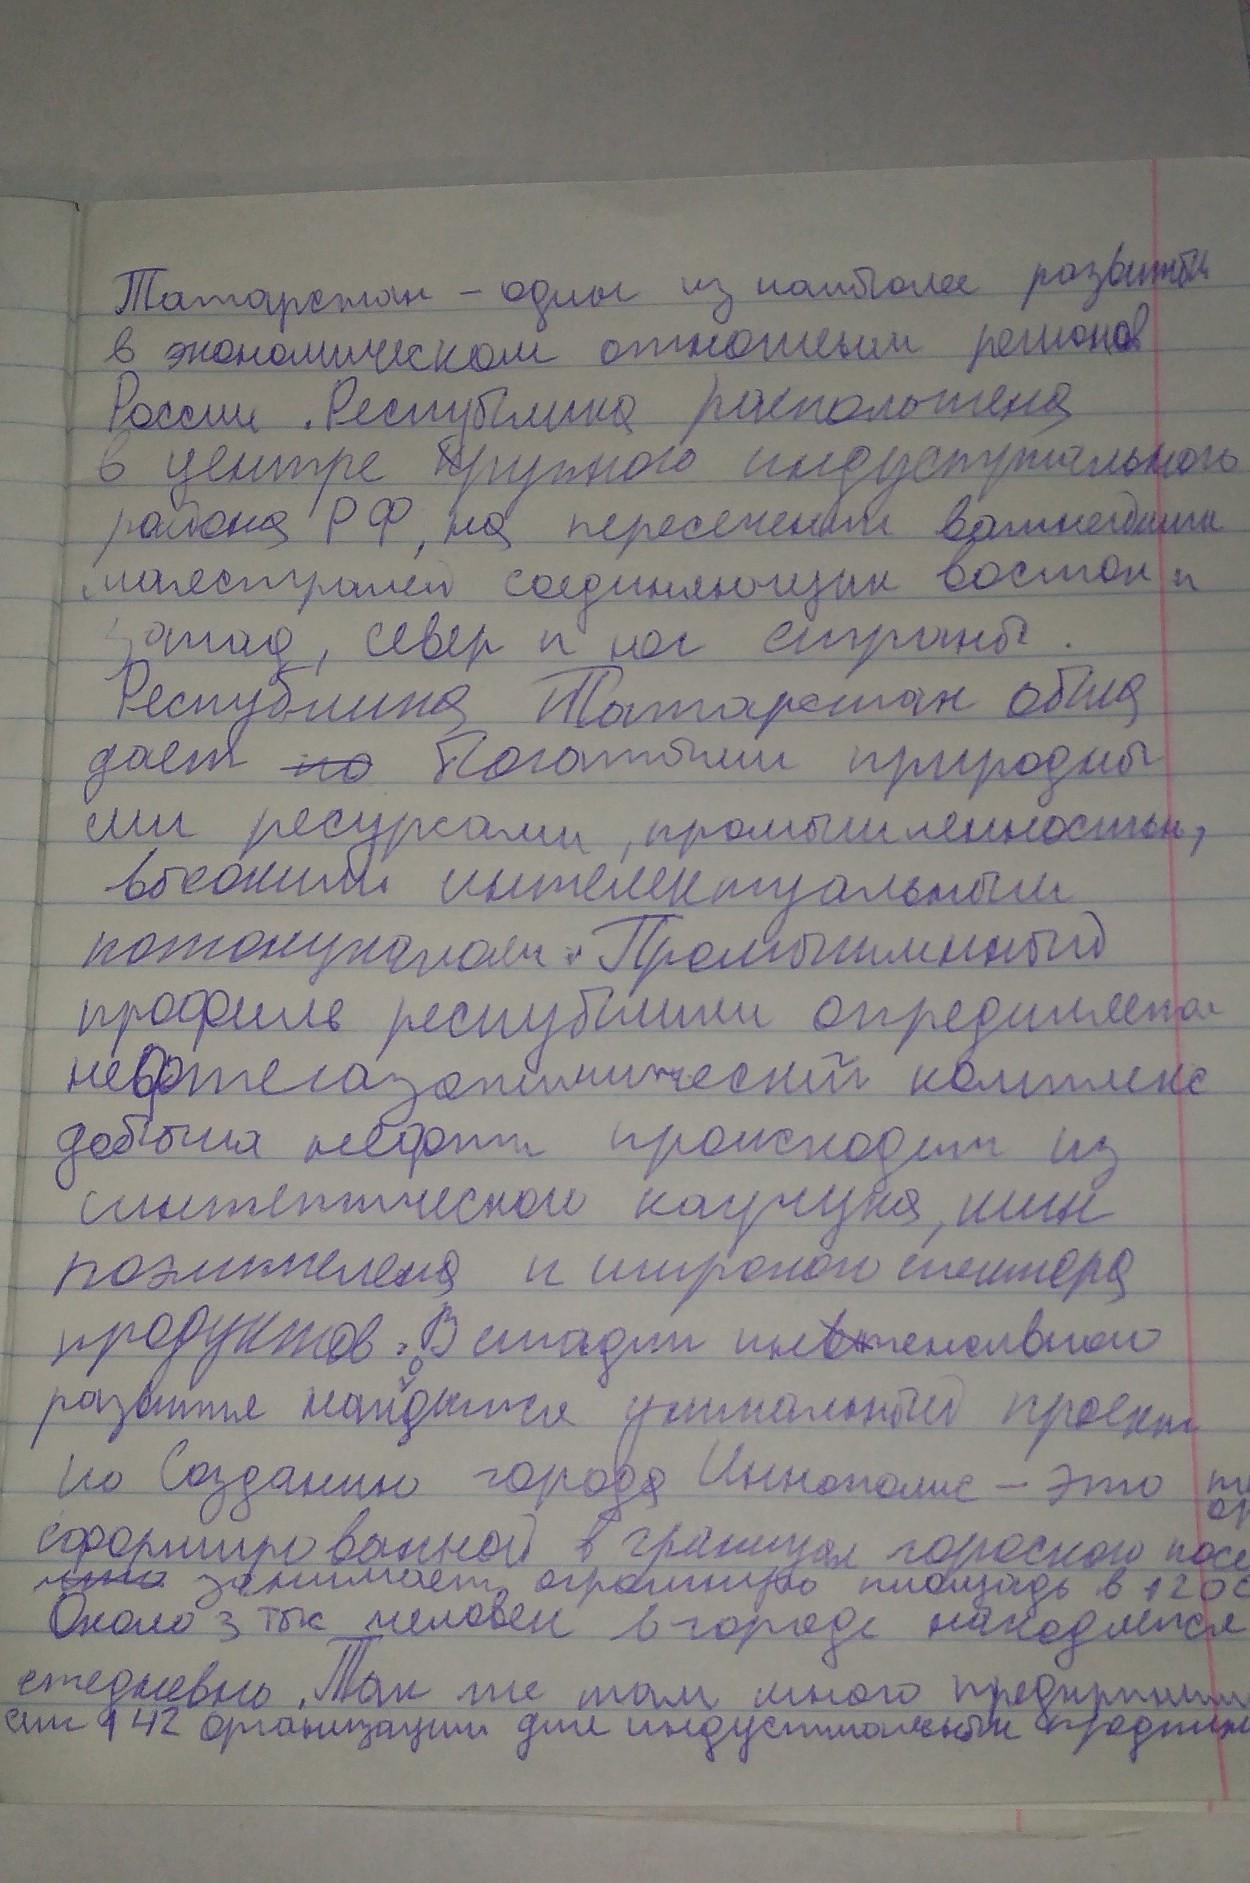 Татарстан – один из наиболее развитых
в экономическом отношении регионов
России. Республика расположена
в центре крупного индустриального
района РФ, на пересечении важнейших
магистралей соединяющих восток и
запад, север и юг страны.
Республика Татарстан обла
дает богатыми природны
ми ресурсами, промышленностью,
высоким интелектуальным
. Промышленный
профиль республики определяется
нефтегазохимический комплекс
добыча нефти происходит из
синтетического каучука, шин
полиэтилена и широкого спектора
продуктов. В стадии интенсивного
развития найдится уникальный проект
по созданию города Иннополис – это
сформированной в границах городского посе
занимает огромную площадь в 120
Около 3 тыс человек в городе находятся
ежедневно. Так же там много
142 организации для индустриальных